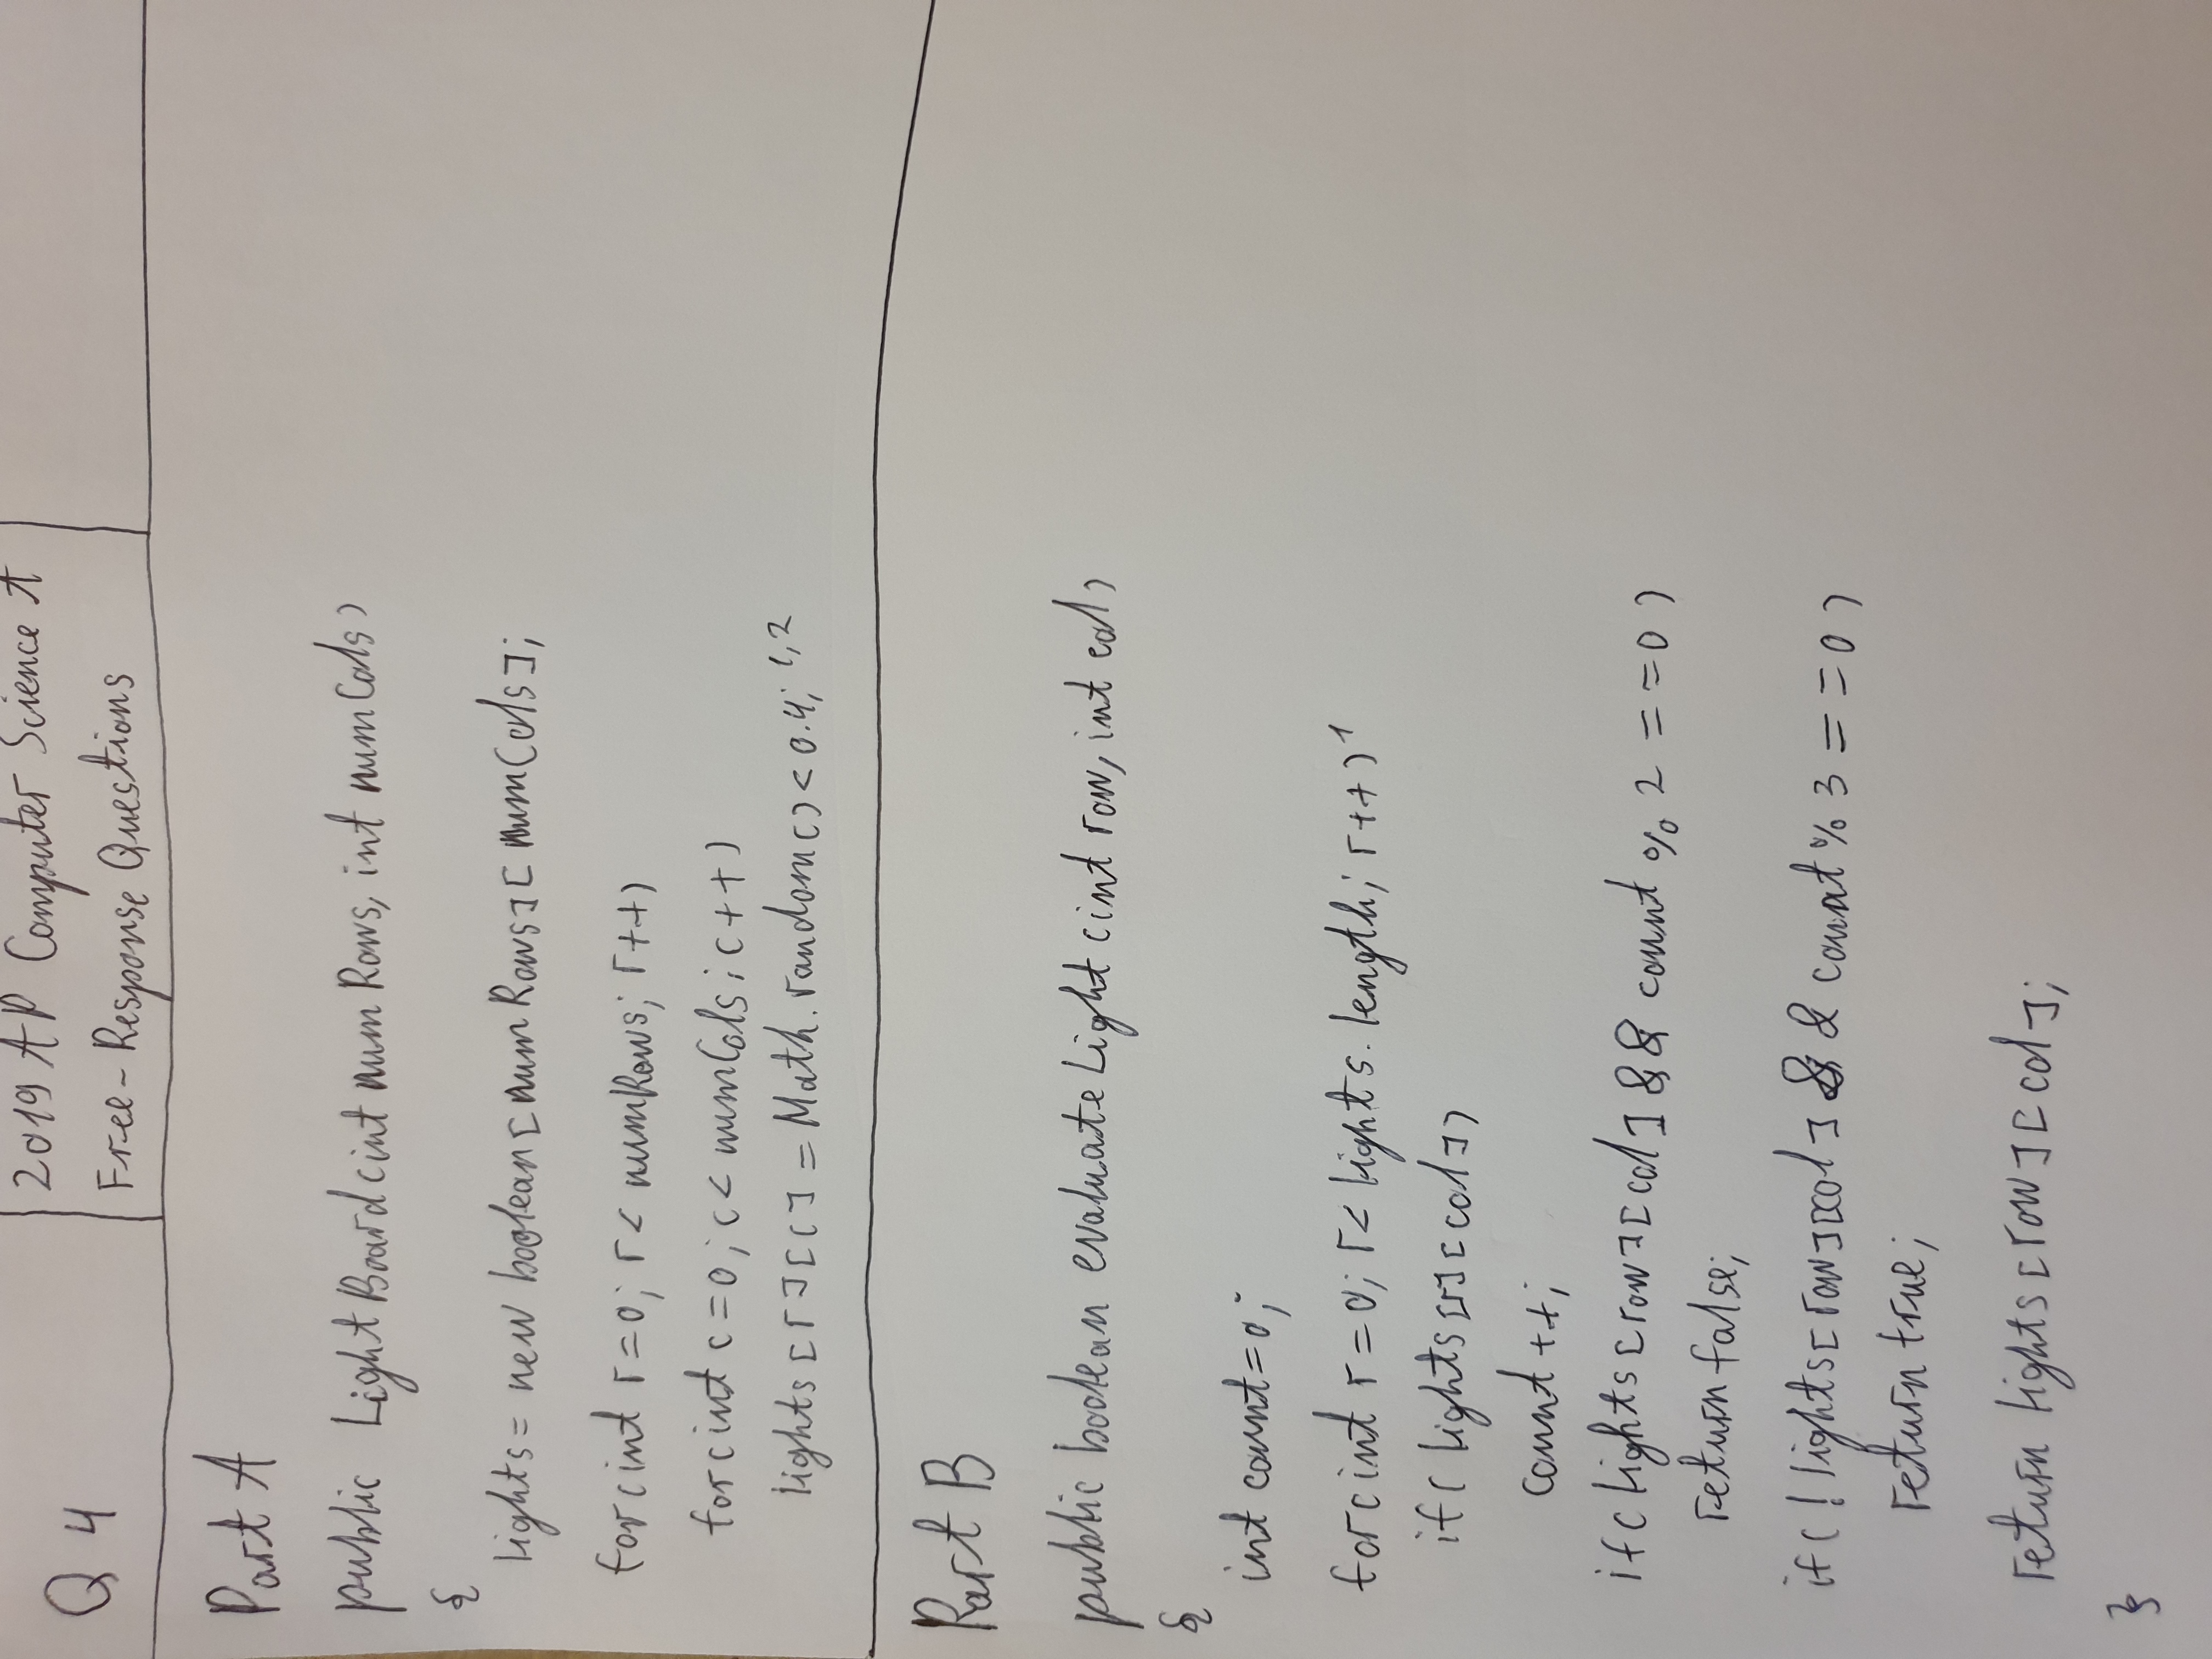 Q 4
2019 AP Computer Science A
Free-Response Questions
Part A
public LightBoard(int numRows, int numCols)
{
lights = new boolean[numRows][numCols];
for(int r=0; r< numRows; r++)
for(int c=0; c< numCols; c++)
lights[r][c] = Math.random()<0.4; 1,2
Part B
public boolean evaluateLight(int row, int col)
{
int count=0;
for(int r=0; r< lights.length; r++) 1
if( lights[r][col])
count++;
if( lights[row][col] && count % 2 ==0 )
return false;
if( ! lights[row][col] && count % 3 ==0 )
return true;
return lights[row][col];
}